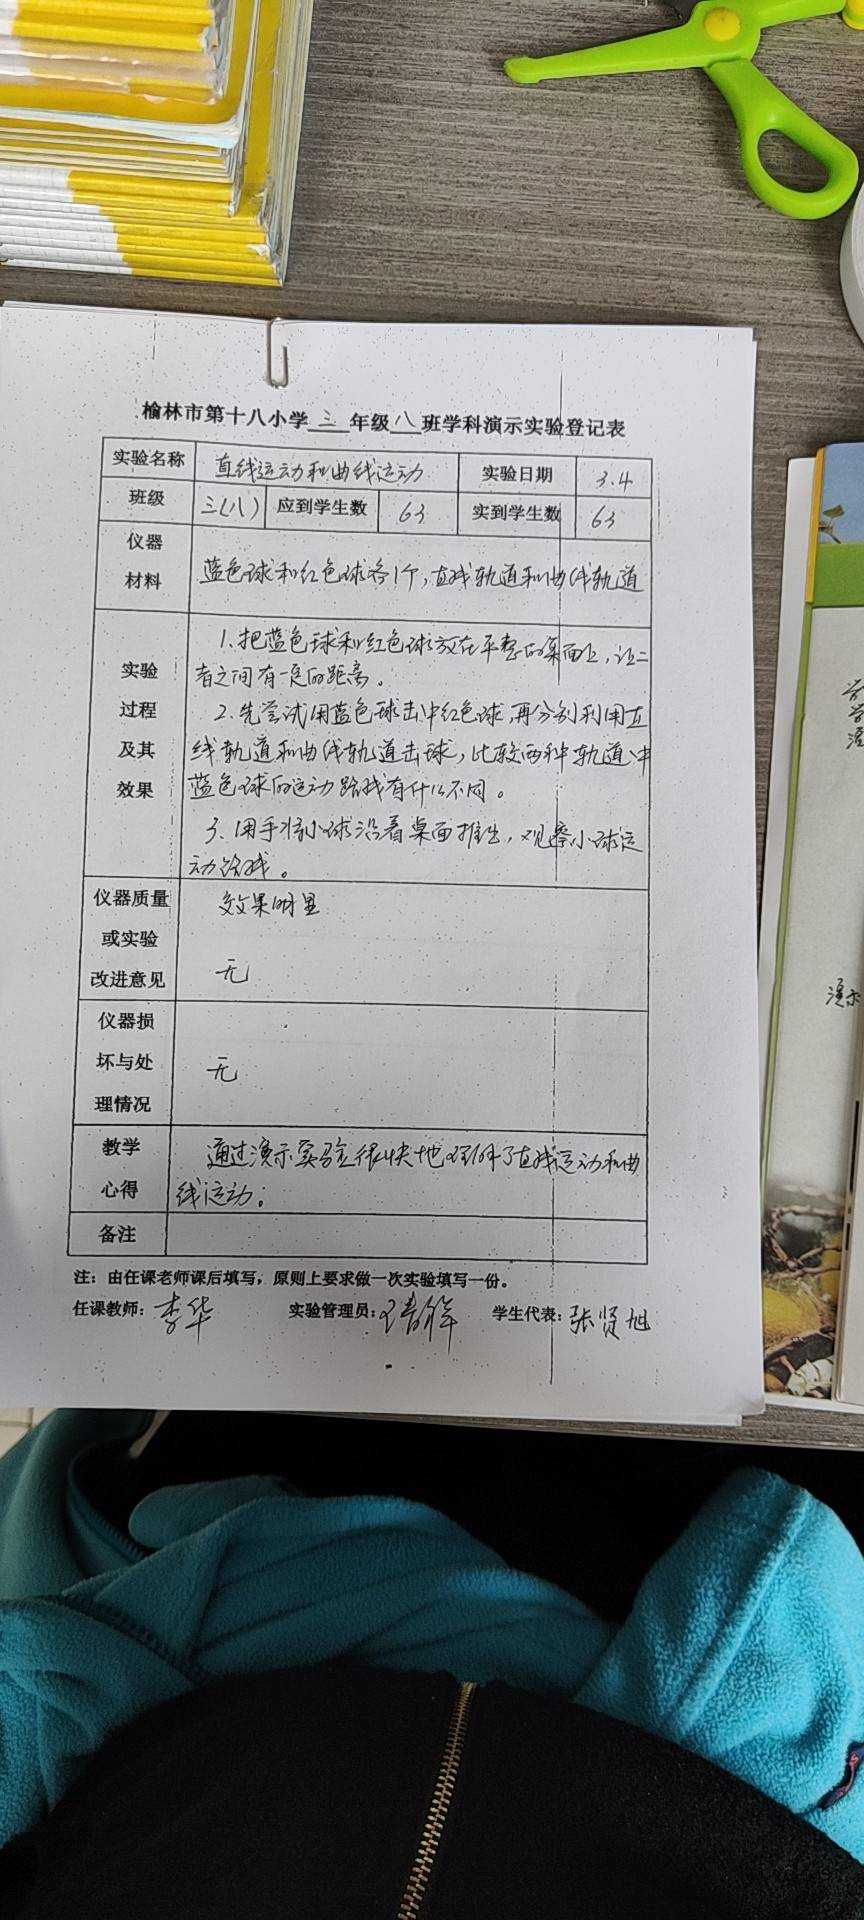 榆林市第十八小学 三 年级 八 班学科演示实验登记表
实验名称 直线运动和曲线运动 实验日期 3.4
班级 三(八) 应到学生数 63 实到学生数 63
仪器
材料
蓝色球和红色球各1个,直线轨道和曲线轨道
实验
过程
及其
效果
1.把蓝色球和红色球放在平整的桌面上,让二
者之间有一定的距离。
2.先尝试用蓝色球击中红色球,再分别利用直
线轨道和曲线轨道击球,比较两种轨道中
蓝色球的运动路线有什么不同。
3、用手将小球沿着桌面推出,观察小球运
动路线。
仪器质量
或实验
改进意见
效果明显
无
仪器损
坏与处
理情况
无
教学
心得
通过演示实验很快地理解了直线运动和曲
线运动;
备注
注:由任课老师课后填写,原则上要求做一次实验填写一份。
任课教师:李华 实验管理员: 学生代表:张贤旭
演示